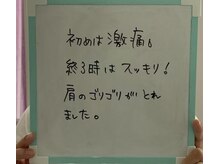 初めは激痛。
終了時はスッキリ！
肩のゴリゴリがとれ
ました。